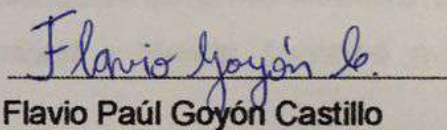 Flavio Goyón C.
Flavio Paúl Goyón Castillo